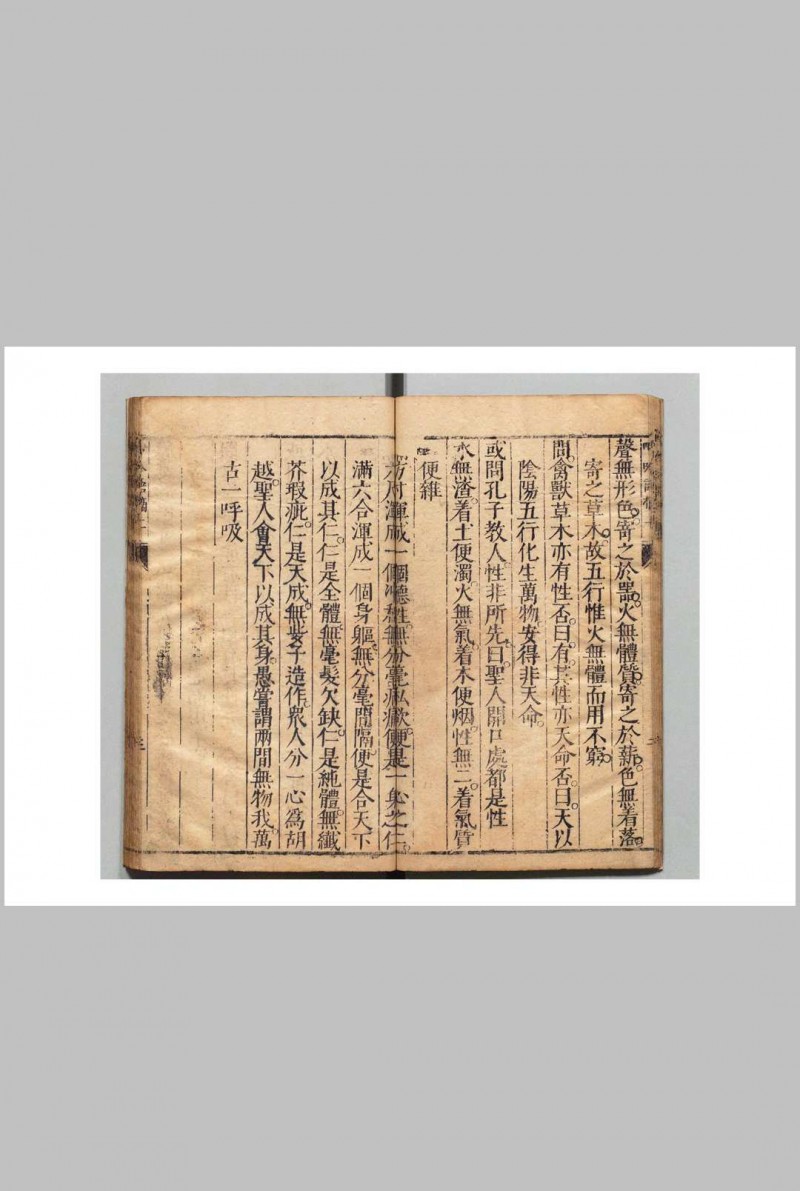 聲無形色。寄之於器。火無體質。寄之於薪。色無着落。
寄之草木。故五行惟火無體而用不窮。
問禽獸草木亦有性否。曰有。其性亦天命否。曰。天以
陰陽五行化生萬物。安得非天命。
或問孔子教人。性非所先。曰。聖人開口處都是性
水無渣。着土便濁。火無氣。着木便烟。性無二。着氣質
便雜
渾成一個德性。無分毫私欲。便是一心之仁。
滿六合渾成一個身軀。無分毫間隔。便是合天下
以成其仁。仁是全體。無毫髮欠缺。仁是純體。無纖
芥瑕疵。仁是天成。無些子造作。眾人分一心為胡
越。聖人會天下以成其身。愚嘗謂兩間無物我。萬
古一呼吸